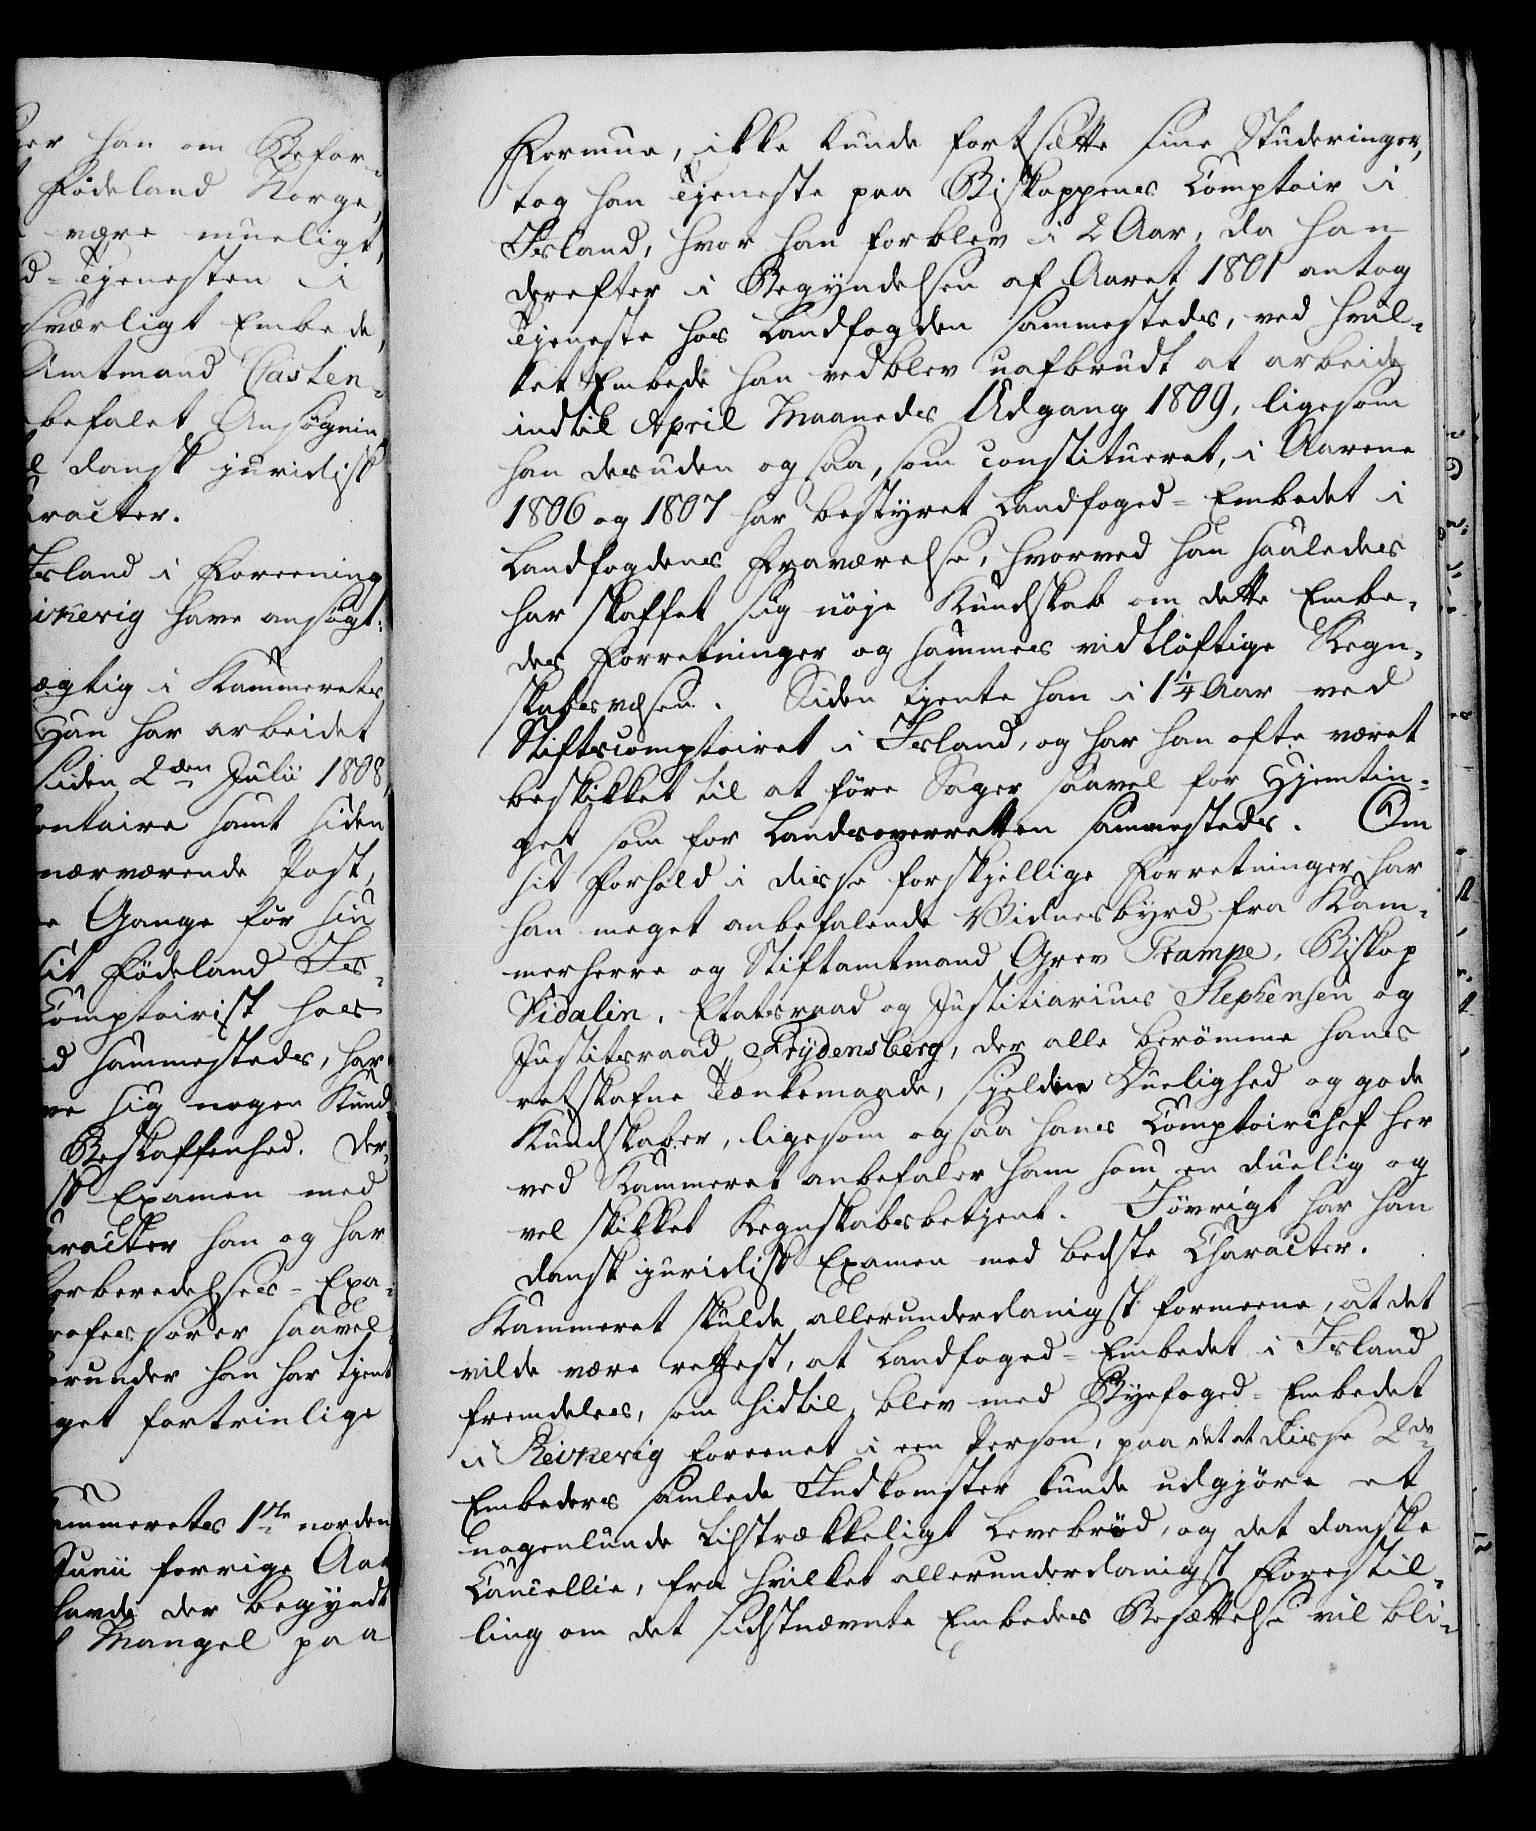 er han om Befor-
Fødeland Norge,
være mueligt,
d-Tjenesten i
sværligt Embede,
Amtmand Casten-
befalet Ansøgnin
dansk juridisk
aracter.
Island i Foreening
ikevig have ansøgt:
ægtig i Kammerets
Han har arbeidet
siden 2den Julii 1808,
ontaire samt siden
nærværende Post,
e Gange før sin
sit Fødeland Is-
Comptoirist hos
d sammesteds, har
ve sig nogen Kund
Beskaffenhed. Der,
sk Examen med
aracter han og har
Forberedelses-Exa-
rofessorer saavel
erunder han har tjent
get fortrinlige
ammerets 1ste norden
Junii forrige Aar
havde der begyndt
Mangel paa
Formue, ikke kunde fortsætte sine Studeringer,
tog han Tjeneste paa Biskoppens Comptoir i
Island, hvor han forblev i 2 Aar, da han
derefter i Begyndelsen af Aaret 1801 antog
Tjeneste hos Landfogden sammesteds, ved hvil-
ket Embede han vedblev uafbrudt at arbeide
indtil April Maaneds Udgang 1809, ligesom
han desuden ogsaa, som constitueret, i Aarene
1806 og 1807 har bestyret Landfoged-Embedet i
Landfogdens Fraværelse, hvorved han saaledes
har skaffet sig nøje Kundskab om dette Embe-
des Forretninger og sammes vidtløftige Regn-
skabsvæsen. Siden tjente han i 1 1/4 Aar ved
Stiftscomptoiret i Island, og har han ofte været
beskikket til at føre Sager saavel for Hjemtin-
get som for Landsoverretten sammesteds. Om
sit Forhold i disse forskjellige Forretninger har
han meget anbefalende Vidnesbyrd fra Kam-
merherre og Stiftamtmand Grev Trampe, Biskop
Vidalin, Etatsraad og Justitiarius Stephensen og
Justitsraad Frydensberg, der alle berømme hans
retskafne Tænkemaade, sjeldne Duelighed og gode
Kundskaber, ligesom ogsaa hans Comptoirchef her
ved Kammeret anbefaler ham som en duelig og
vel skikket Regnskabsbetjent. Iøvrigt har han
dansk juridisk Examen med bedste Character.
Kammeret skulde allerunderdanigst formeene, at det
vilde være rettest, at Landfoged-Embedet i Island
fremdeles, som hidtil, blev med Byefoged-Embedet
i Reikevig foreenet i een Person, paa det at disse 2de
Embeders samlede Indkomster kunde udgjøre et
nogenlunde tilstrækkeligt Levebrød, og det danske
Cancellie, fra hvilket allerunderdanigst Forestil-
ling om det sidstnævnte Embedes Besættelse vil bli-